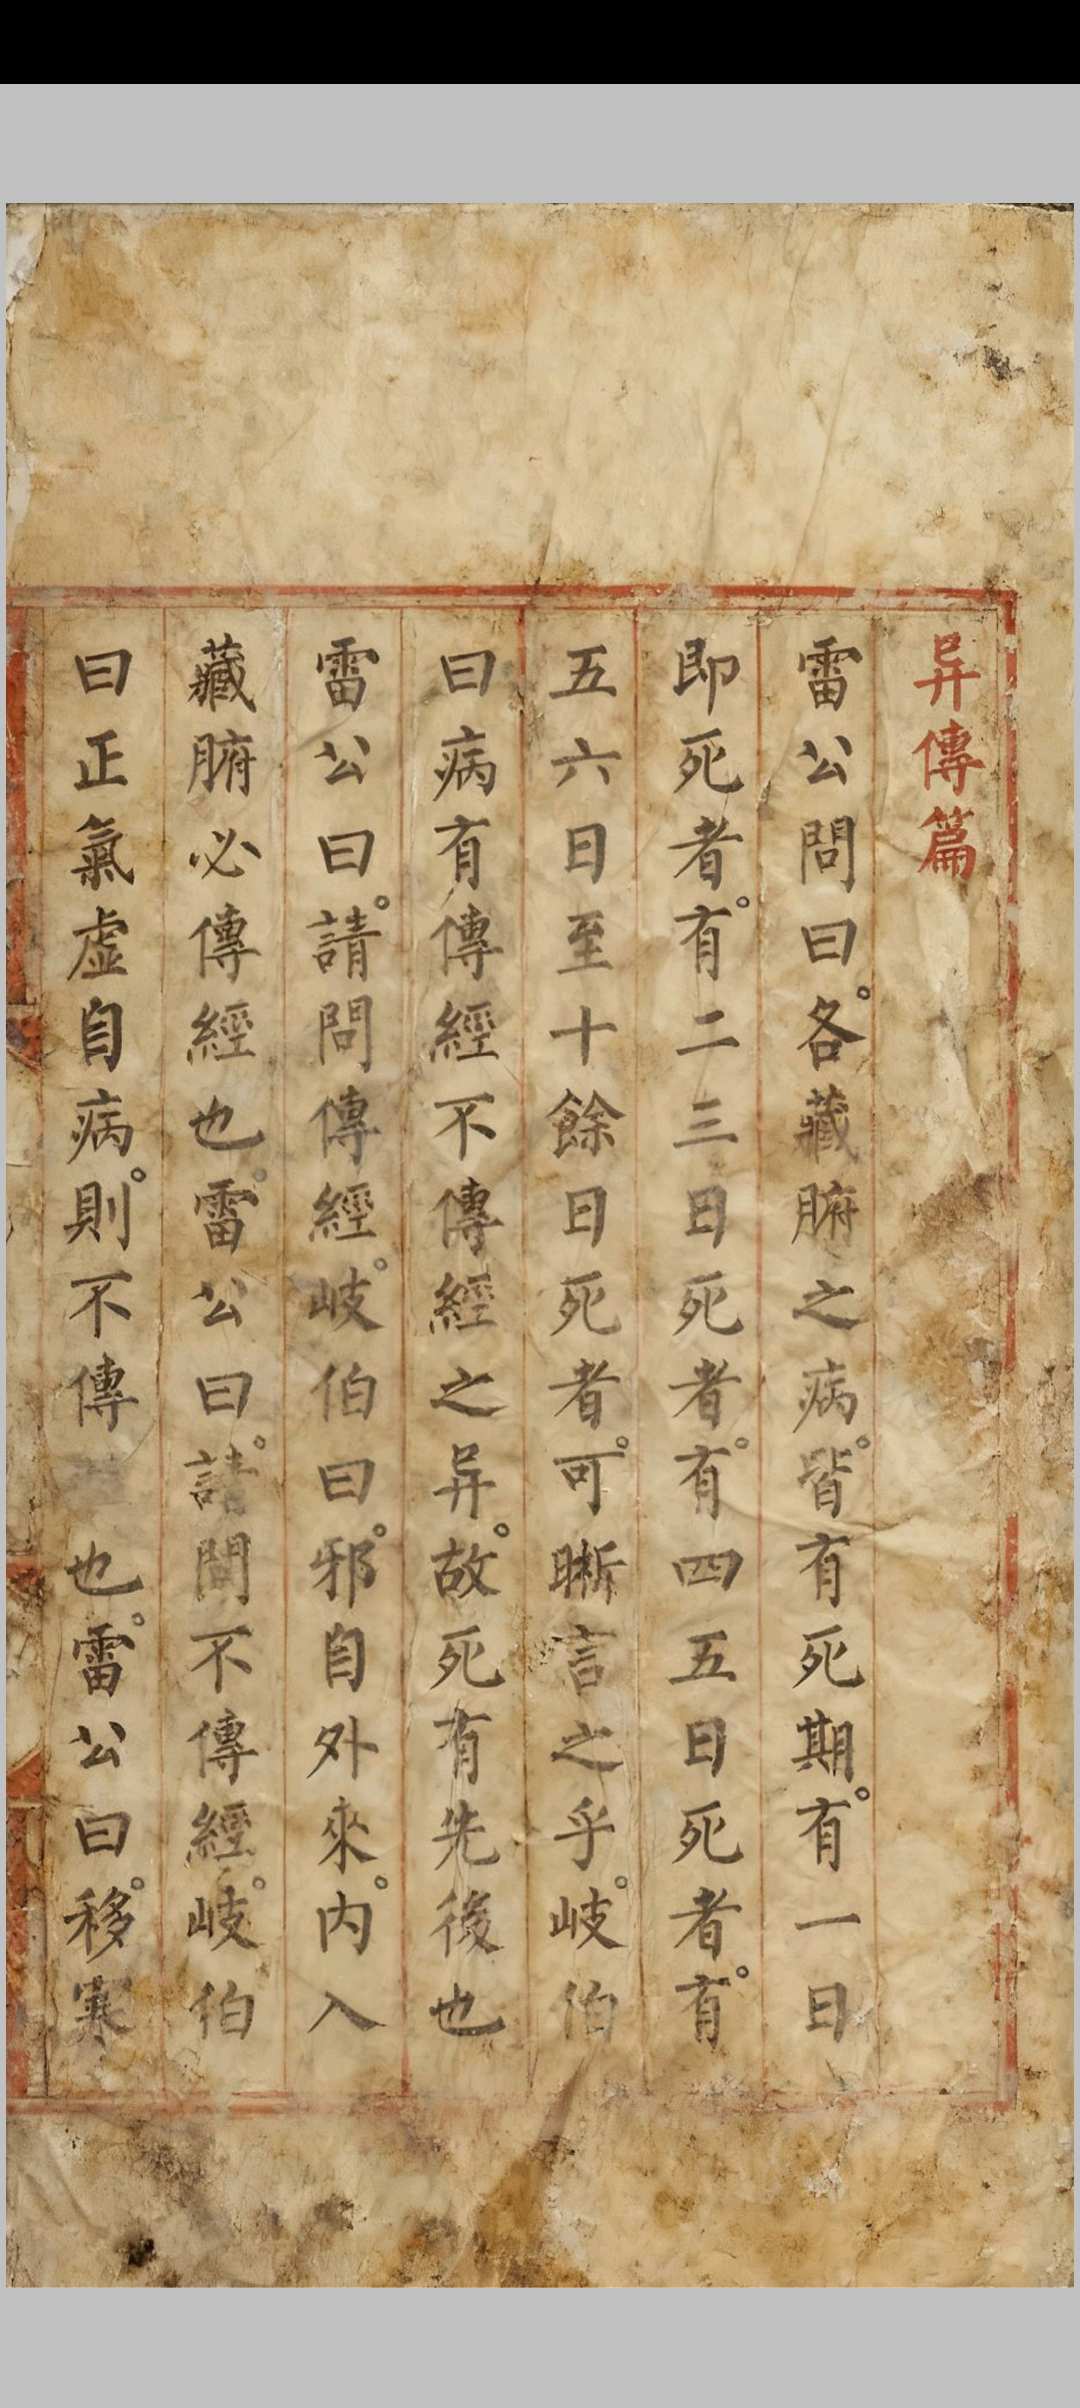 异傳篇
雷公問曰。各藏腑之病。皆有死期。有一日
即死者。有二三日死者。有四五日死者。有
五六日至十餘日死者。可晰言之乎。岐伯
曰病有傳經不傳經之异。故死有先後也
雷公曰。請問傳經。岐伯曰。邪自外來。内入
藏腑必傳經也。雷公曰。請問不傳經。岐伯
曰正氣虛自病。則不傳也。雷公曰。移寒